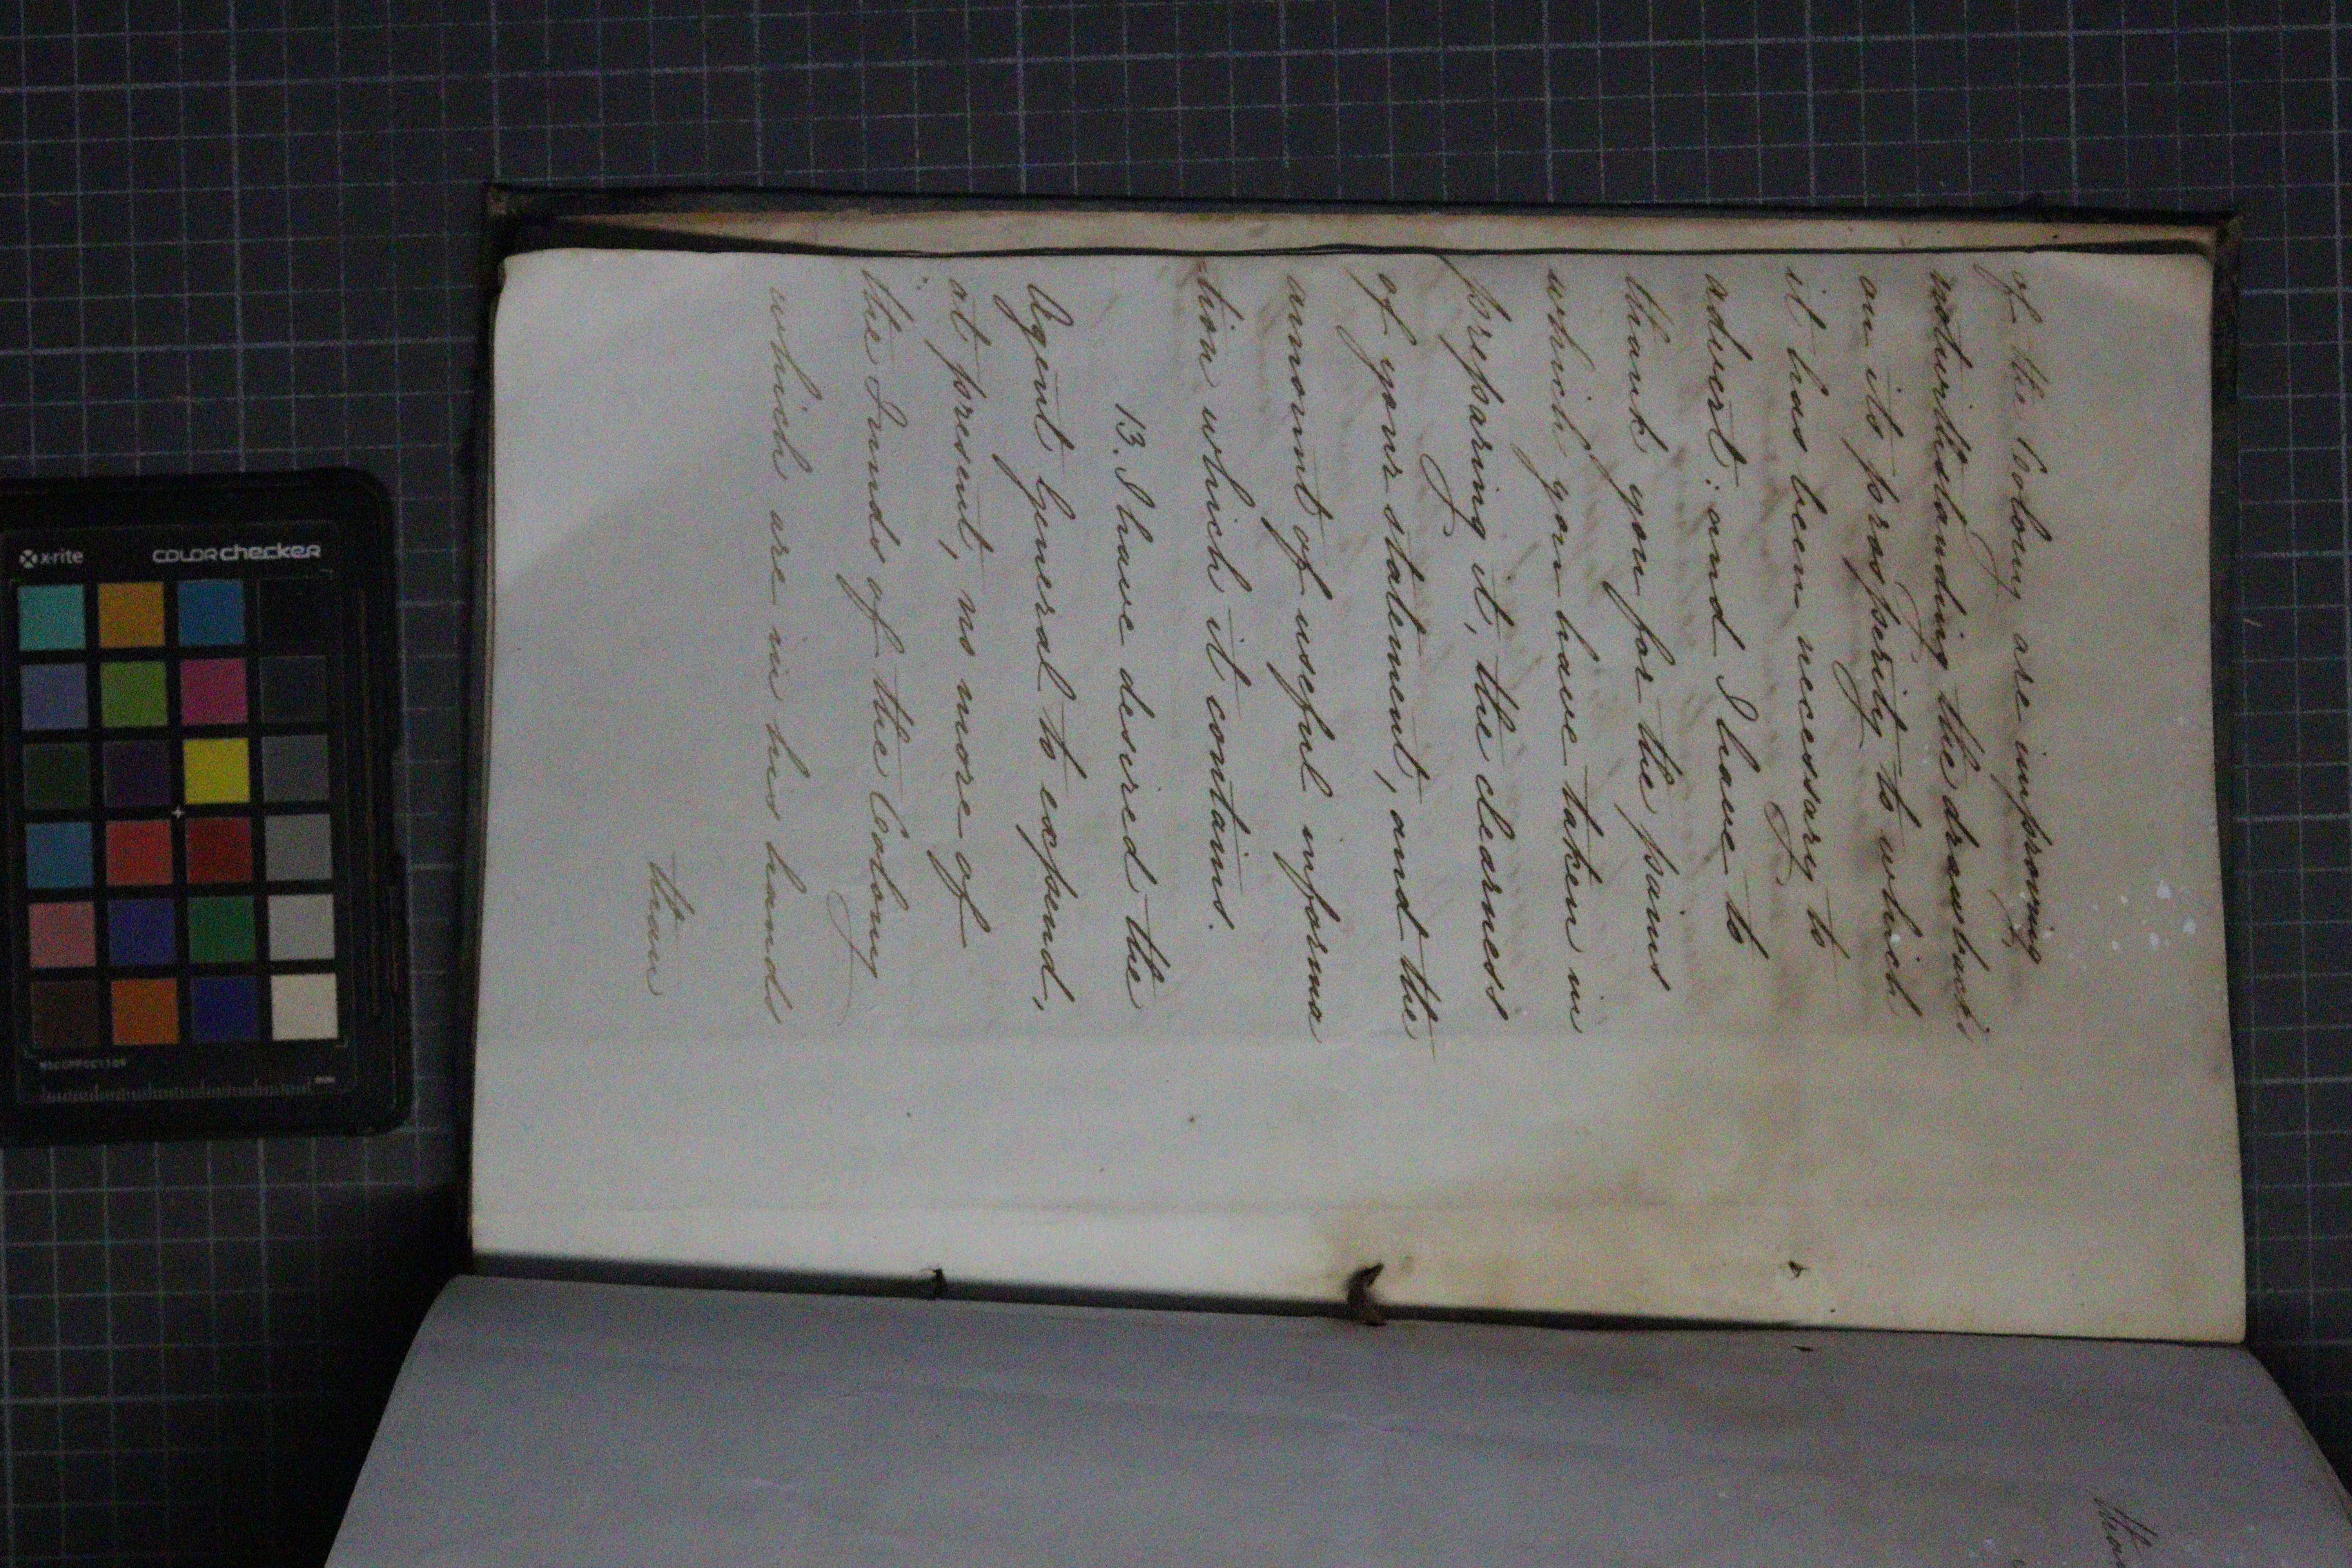 of the Colony are improving
notwithstanding the drawbacks
on its prosperity to which
it has been necessary to
advert: and I have to
thank you for the pains
which you have taken in
preparing it, the clearness
of your statement, and the
amount of useful informa
tion which it contains.
13. I have desired the
Agent General to expend,
at present, no more of
the Funds of the Colony
which are in his hands
than
x-rite
COLORchecker